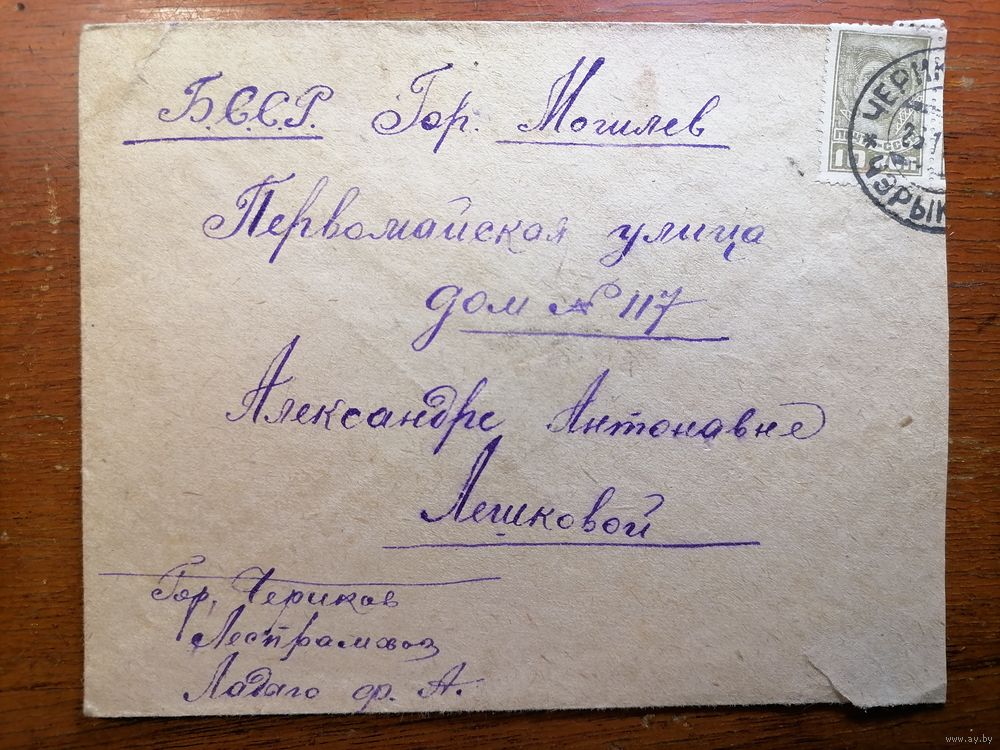 Б.С.С.Р. Гор. Могилев
Первомайская улица
дом № 117
Александре Антонавне
Лешковой
Гор. Чериков
Леспрамхоз
Ладаго ф. А.
ЧЕРИК
ЧЭРЫК
10
www.ay.by